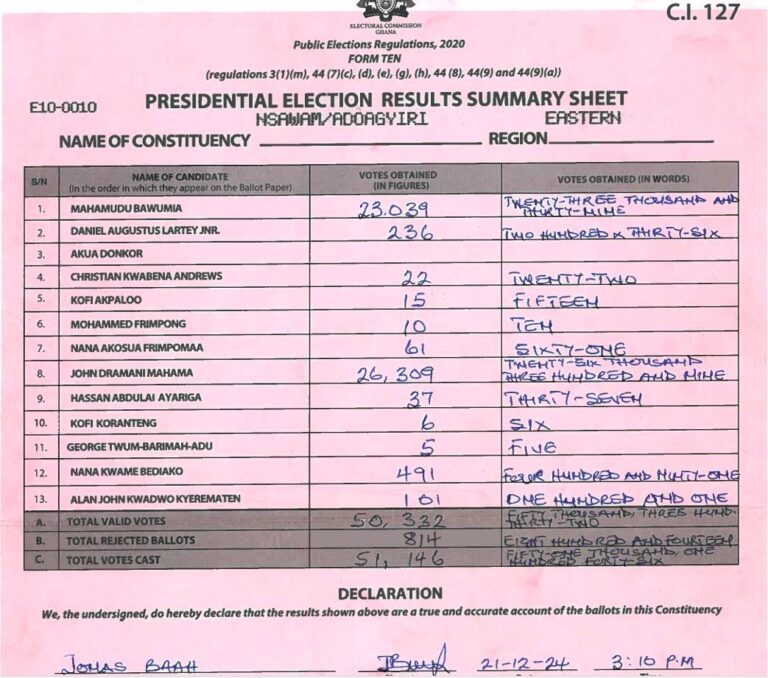 ELECTORAL COMMISSION
GHANA
C.I. 127
Public Elections Regulations, 2020
FORM TEN
(regulations 3(1)(m), 44 (7)(c), (d), (e), (g), (h), 44 (8), 44(9) and 44(9)(a))
E10-0010 PRESIDENTIAL ELECTION RESULTS SUMMARY SHEET
NSAWAM/ADOAGYIRI EASTERN
NAME OF CONSTITUENCY REGION
S/N NAME OF CANDIDATE (In the order in which they appear on the Ballot Paper) VOTES OBTAINED (IN FIGURES) VOTES OBTAINED (IN WORDS)
1. MAHAMUDU BAWUMIA 23,039 TWENTY-THREE THOUSAND AND THIRTY-NINE
2. DANIEL AUGUSTUS LARTEY JNR. 236 TWO HUNDRED & THIRTY-SIX
3. AKUA DONKOR
4. CHRISTIAN KWABENA ANDREWS 22 TWENTY-TWO
5. KOFI AKPALOO 15 FIFTEEN
6. MOHAMMED FRIMPONG 10 TEN
7. NANA AKOSUA FRIMPOMAA 61 SIXTY-ONE
8. JOHN DRAMANI MAHAMA 26,309 TWENTY-SIX THOUSAND THREE HUNDRED AND NINE
9. HASSAN ABDULAI AYARIGA 37 THIRTY-SEVEN
10. KOFI KORANTENG 6 SIX
11. GEORGE TWUM-BARIMAH-ADU 5 FIVE
12. NANA KWAME BEDIAKO 491 FOUR HUNDRED AND NINTY-ONE
13. ALAN JOHN KWADWO KYEREMATEN 101 ONE HUNDRED AND ONE
A. TOTAL VALID VOTES 50,332 FIFTY THOUSAND, THREE HUND. THIRTY-TWO
B. TOTAL REJECTED BALLOTS 814 EIGHT HUNDRED AND FOURTEEN
C. TOTAL VOTES CAST 51,146 FIFTY-ONE THOUSAND, ONE HUNDRED FORTY-SIX
DECLARATION
We, the undersigned, do hereby declare that the results shown above are a true and accurate account of the ballots in this Constituency
JONAS BAAH 21-12-24 3:10 P.M